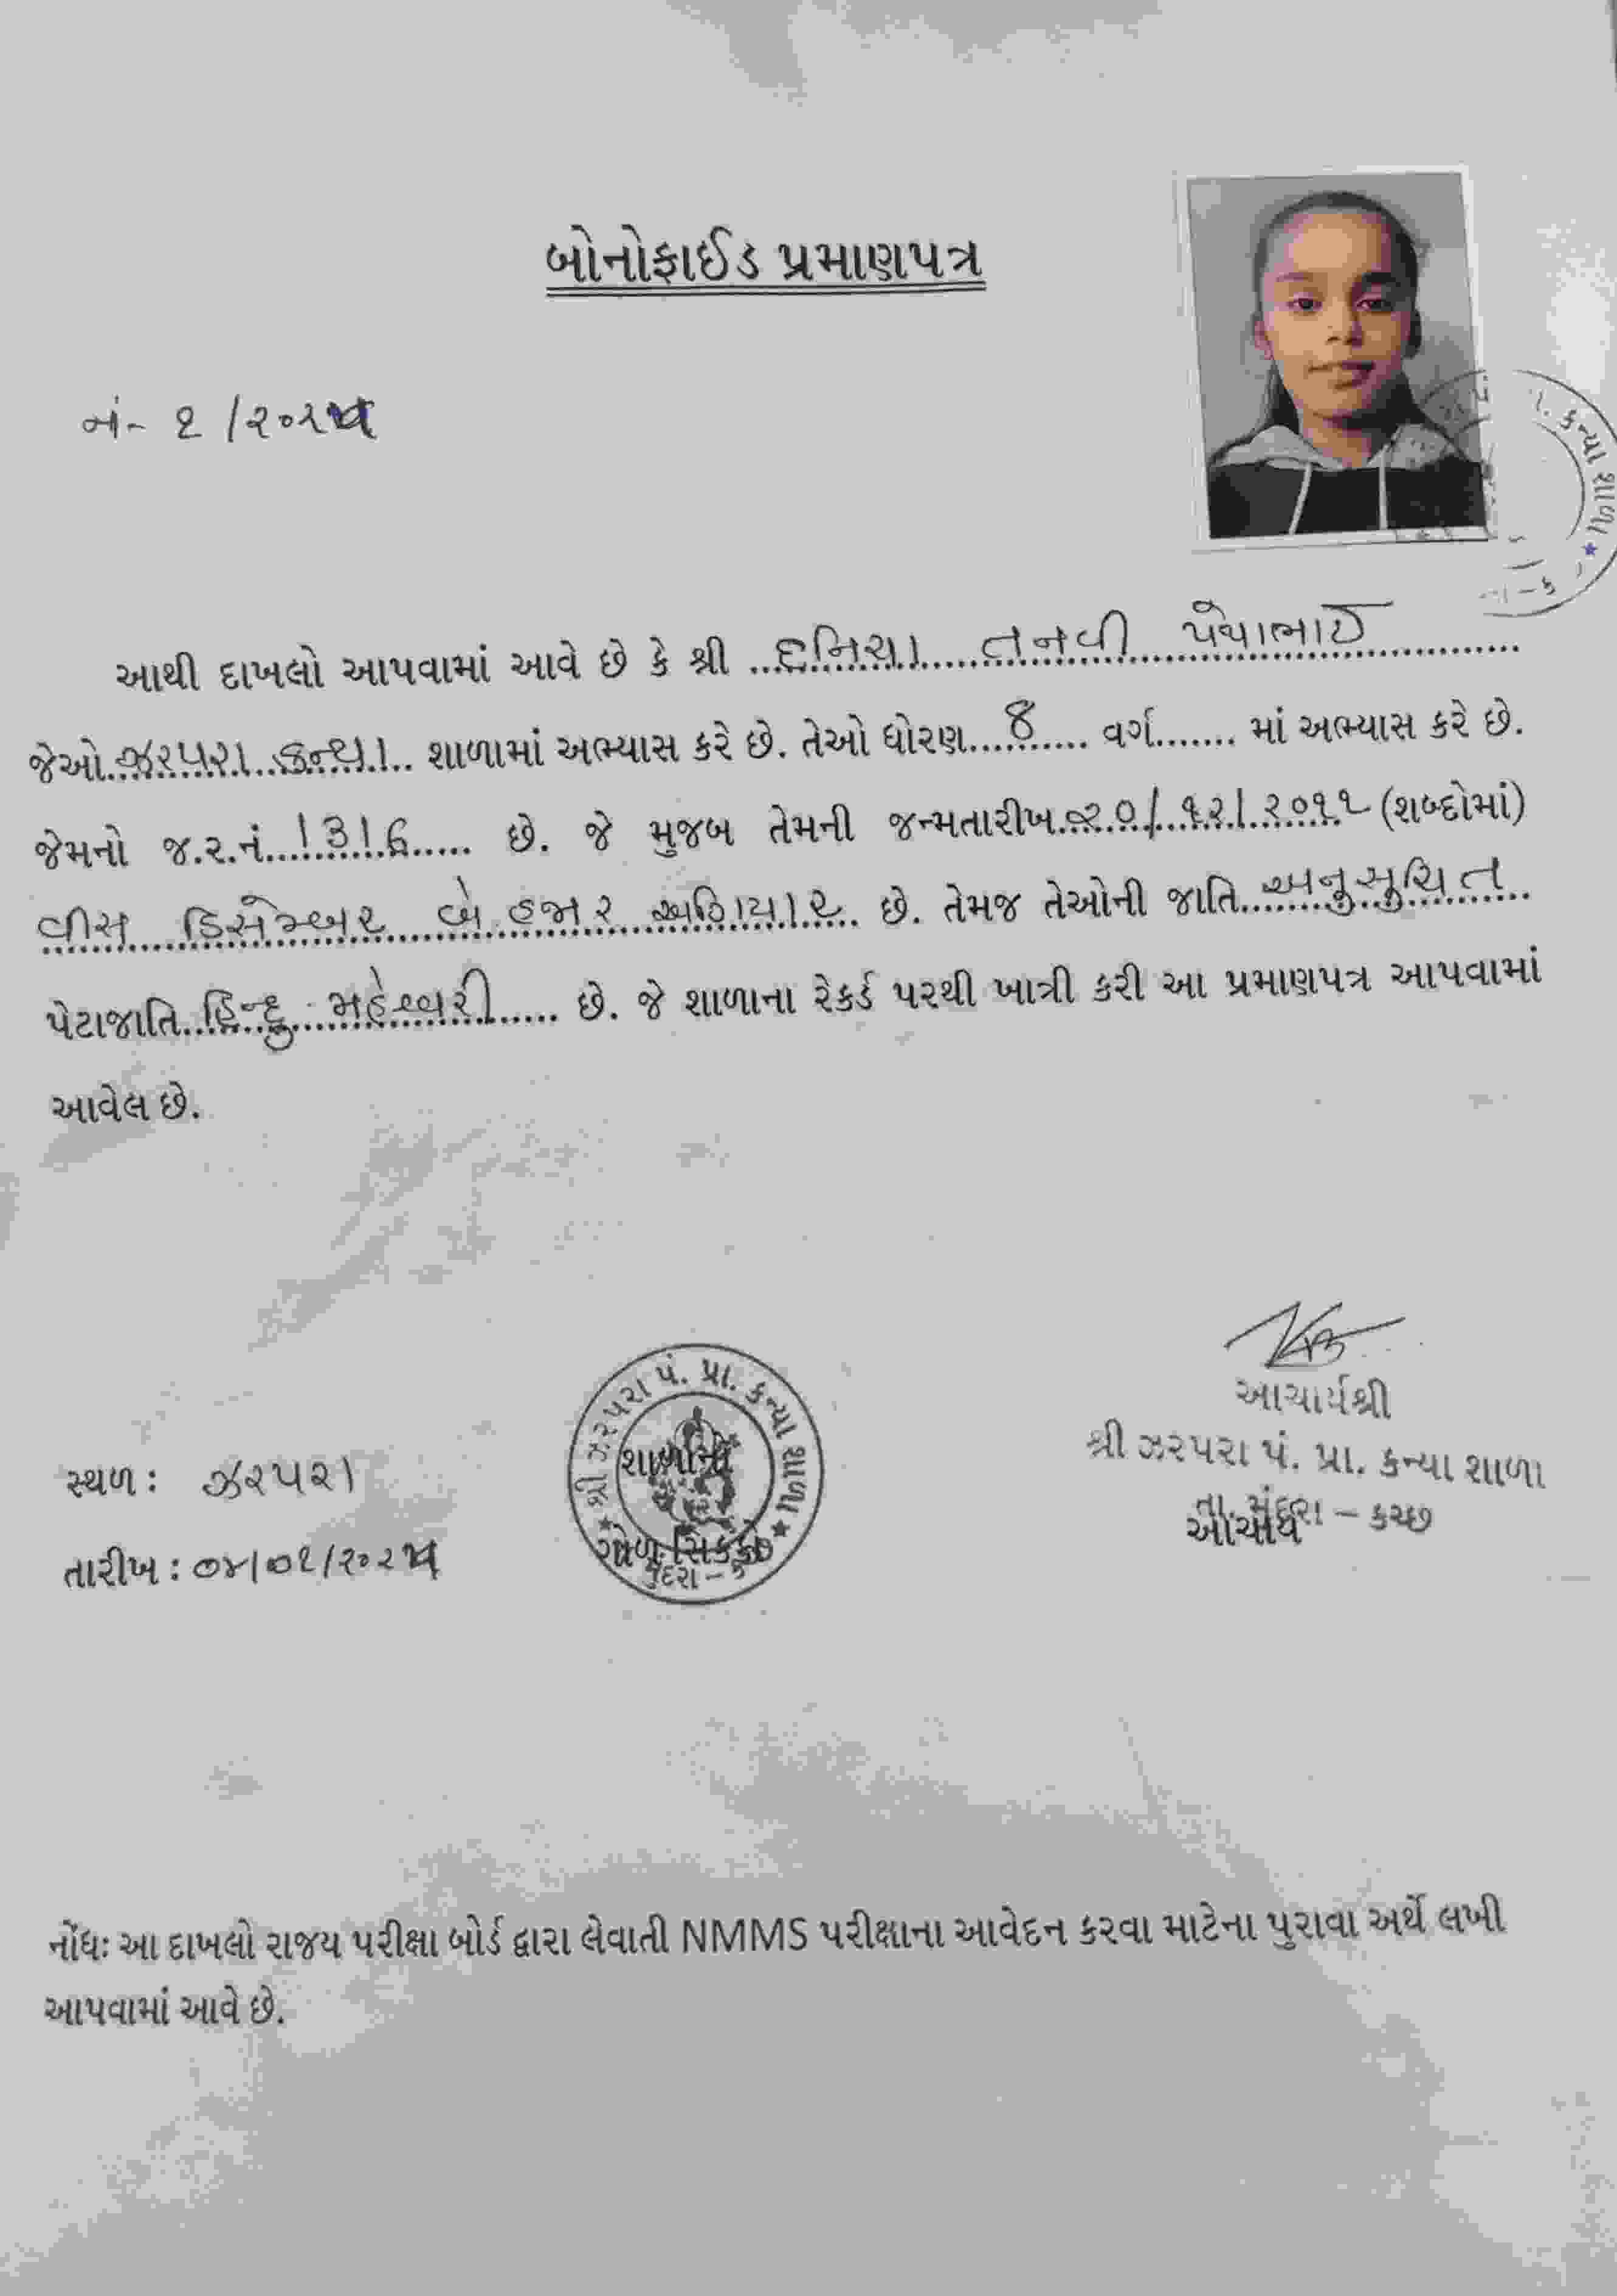 બોનોફાઈડ પ્રમાણપત્ર
નં- ૧ /૨૦૨૫
૨. કન્યા શાળા
આથી દાખલો આપવામાં આવે છે કે શ્રી ............ તનવી ............
જેઓ..ઝરપરા કન્યા.. શાળામાં અભ્યાસ કરે છે. તેઓ ધોરણ....8.... વર્ગ....... માં અભ્યાસ કરે છે.
જેમનો જ.ર.નં....1316..... છે. જે મુજબ તેમની જન્મતારીખ..૨૦/૧૨/૨૦૧૧ (શબ્દોમાં)
વીસ ડિસેમ્બર બે હજાર અગિયાર છે. તેમજ તેઓની જાતિ..અનુસુચિત..
પેટાજાતિ..હિન્દુ મહેશ્વરી..... છે. જે શાળાના રેકર્ડ પરથી ખાત્રી કરી આ પ્રમાણપત્ર આપવામાં
આવેલ છે.
આચાર્યશ્રી
શ્રી ઝરપરા પં. પ્રા. કન્યા શાળા
તા. મુંદરા – કચ્છ
આચાર્ય
શ્રી ઝરપરા પં. પ્રા. કન્યા શાળા
શાળાનો
ગોળ સિક્કો
મુંદરા –
સ્થળ : ઝરપરા
તારીખ : ૦૪/૦૧/૨૦૨૫
નોંધઃ આ દાખલો રાજય પરીક્ષા બોર્ડ દ્વારા લેવાતી NMMS પરીક્ષાના આવેદન કરવા માટેના પુરાવા અર્થે લખી
આપવામાં આવે છે.